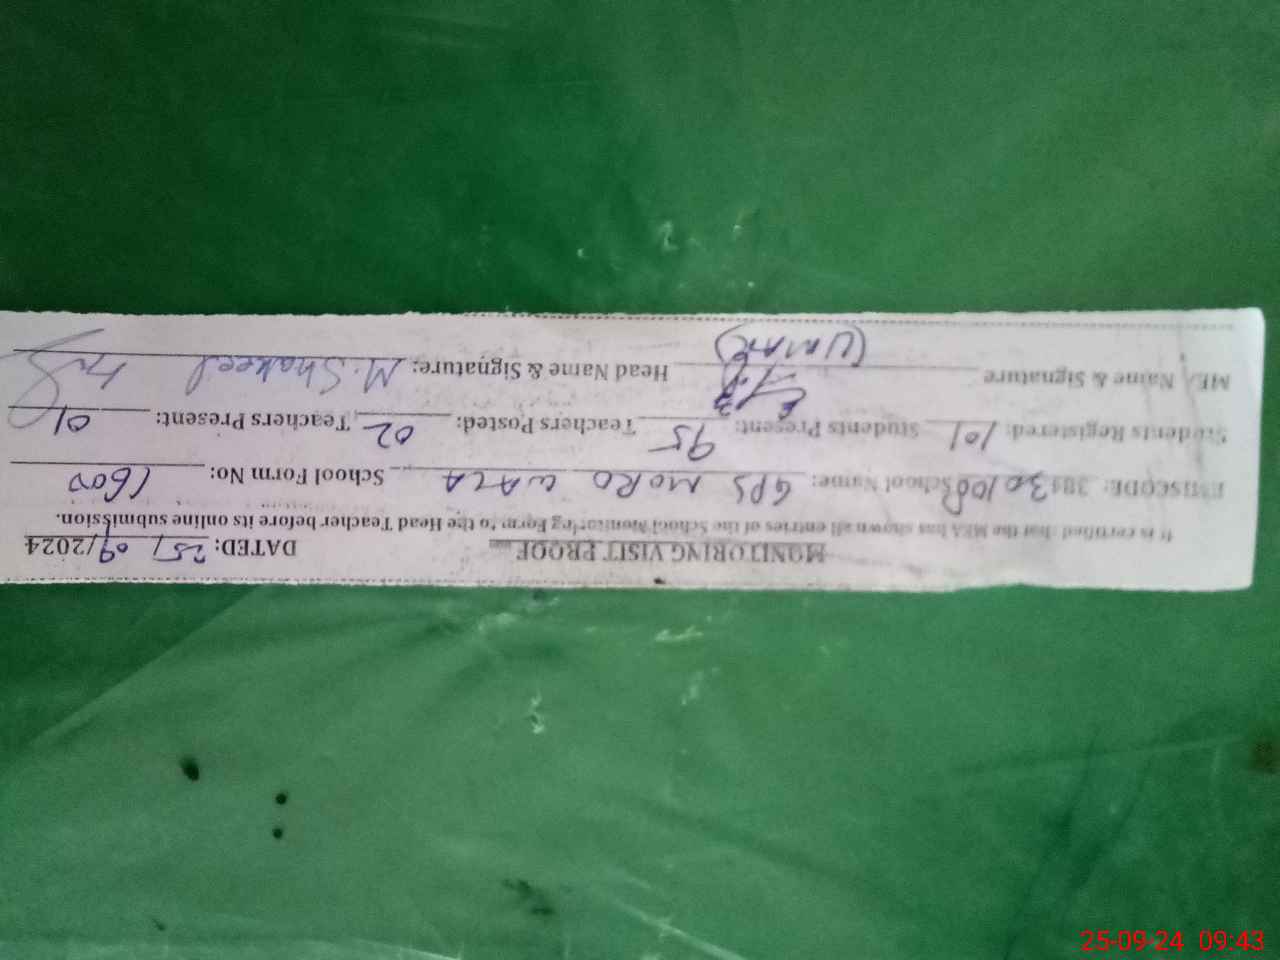 MONITORING VISIT PROOF DATED: 25/09/2024
It is certified that the MEA has shown all entries of the School Monitoring Form to the Head Teacher before its online submission.
EMISCODE: 38130108 School Name: GPS MORO WALA School Form No: 1600
Students Registered: 101 Students Present: 95 Teachers Posted: 02 Teachers Present: 01
MEA Name & Signature (UMAR) Head Name & Signature: M. Shakeel
25-09-24 09:43